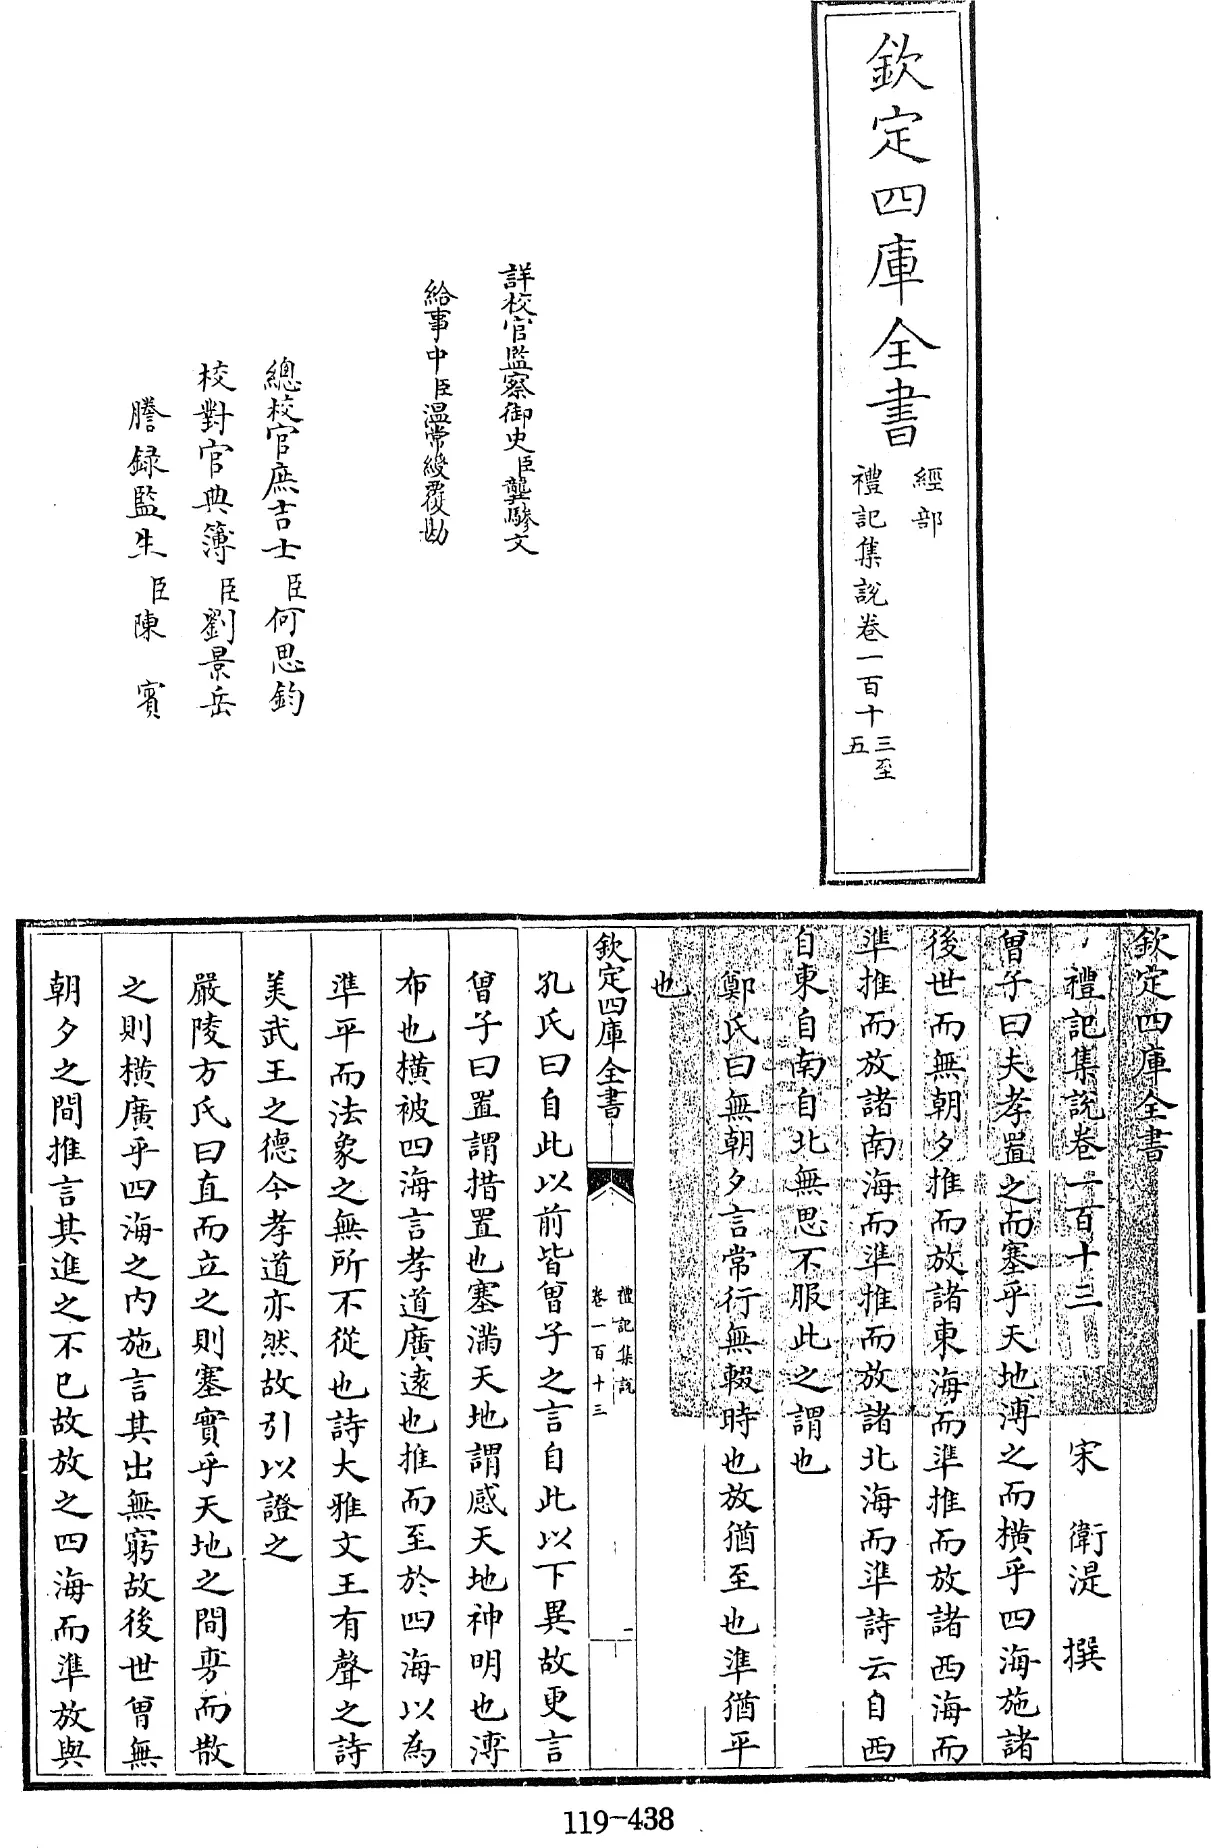 欽定四庫全書
經部
禮記集説卷一百十三至五
詳校官監察御史臣龔驂文
給事中臣温常綬覆勘
總校官庶吉士臣何思鈞
校對官典簿臣劉景岳
謄録監生臣陳賓
欽定四庫全書
禮記集説卷一百十三
宋 衛湜 撰
曾子曰夫孝置之而塞乎天地溥之而横乎四海施諸
後世而無朝夕推而放諸東海而準推而放諸西海而
準推而放諸南海而準推而放諸北海而準詩云自西
自東自南自北無思不服此之謂也
鄭氏曰無朝夕言常行無輟時也放猶至也準猶平
也
欽定四庫全書
禮記集説
卷一百十三
一
孔氏曰自此以前皆曾子之言自此以下異故更言
曾子曰置謂措置也塞滿天地謂感天地神明也溥
布也横被四海言孝道廣逺也推而至於四海以為
準平而法象之無所不從也詩大雅文王有聲之詩
美武王之德今孝道亦然故引以證之
嚴陵方氏曰直而立之則塞實乎天地之間旁而散
之則横廣乎四海之内施言其出無窮故後世曾無
朝夕之間推言其進之不已故放之四海而準放與
119-438